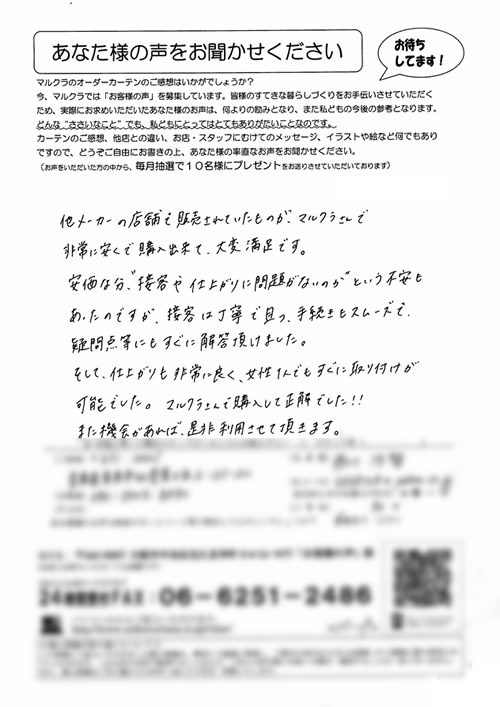 あなた様の声をお聞かせください
お待ち
してます！
マルクラのオーダーカーテンのご感想はいかがでしょうか？
今、マルクラでは「お客様の声」を募集しています。皆様のすてきな暮らしづくりをお手伝いさせていただく
ため、実際にお求めいただいたあなた様のお声は、何よりの励みとなり、また私どもの今後の参考となります。
どんな“ささいなこと”でも、私どもにとってはとてもありがたいことなのです。
カーテンのご感想、他店との違い、お店・スタッフにむけてのメッセージ、イラストや絵など何でもあり
ですので、どうぞご自由にお書きの上、あなた様の率直なお声をお聞かせください。
（お声をいただいた方の中から、毎月抽選で１０名様にプレゼントをお送りさせていただいております）
他メーカーの店舗で販売されていたものが、マルクラさんで
非常に安くで購入出来て、大変満足です。
安価な分、"接客や仕上がりに問題がないのか"という不安も
あったのですが、接客は丁寧で且つ、手続きもスムーズで、
疑問点等にもすぐに解答頂けました。
そして、仕上がりも非常に良く、女性1人でもすぐに取り付けが
可能でした。マルクラさんで購入して正解でした!!
また機会があれば、是非利用させて頂きます。
06-6251-2486